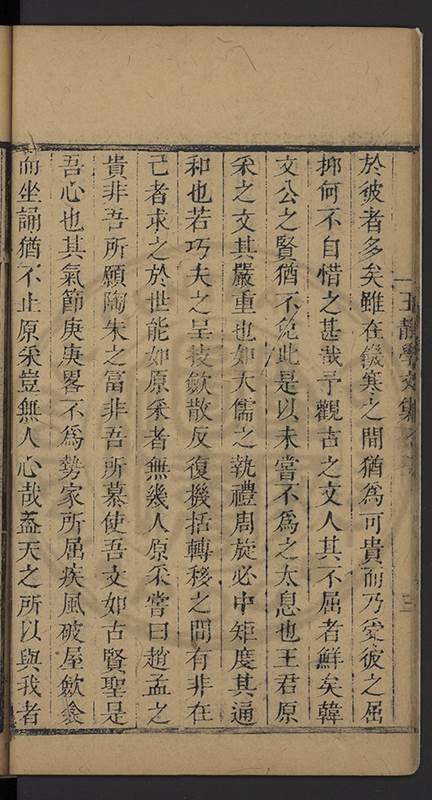 於彼者多矣雖在饑寒之間猶為可貴而乃受彼之屈
抑何不自惜之甚哉予觀古之文人其不屈者鮮矣韓
文公之賢猶不免此是以未嘗不為之太息也王君原
采之文其嚴重也如大儒之執禮周旋必中矩度其通
和也若巧夫之呈技斂散反復機括轉移之間有非在
己者求之於世能如原采者無幾人原采嘗曰趙孟之
貴非吾所願陶朱之富非吾所慕使吾文如古賢聖是
吾心也其氣節庚庚畧不為勢家所屈疾風破屋歛衾
而坐誦猶不止原采豈無人心哉葢天之所以與我者
王靜學文集
三